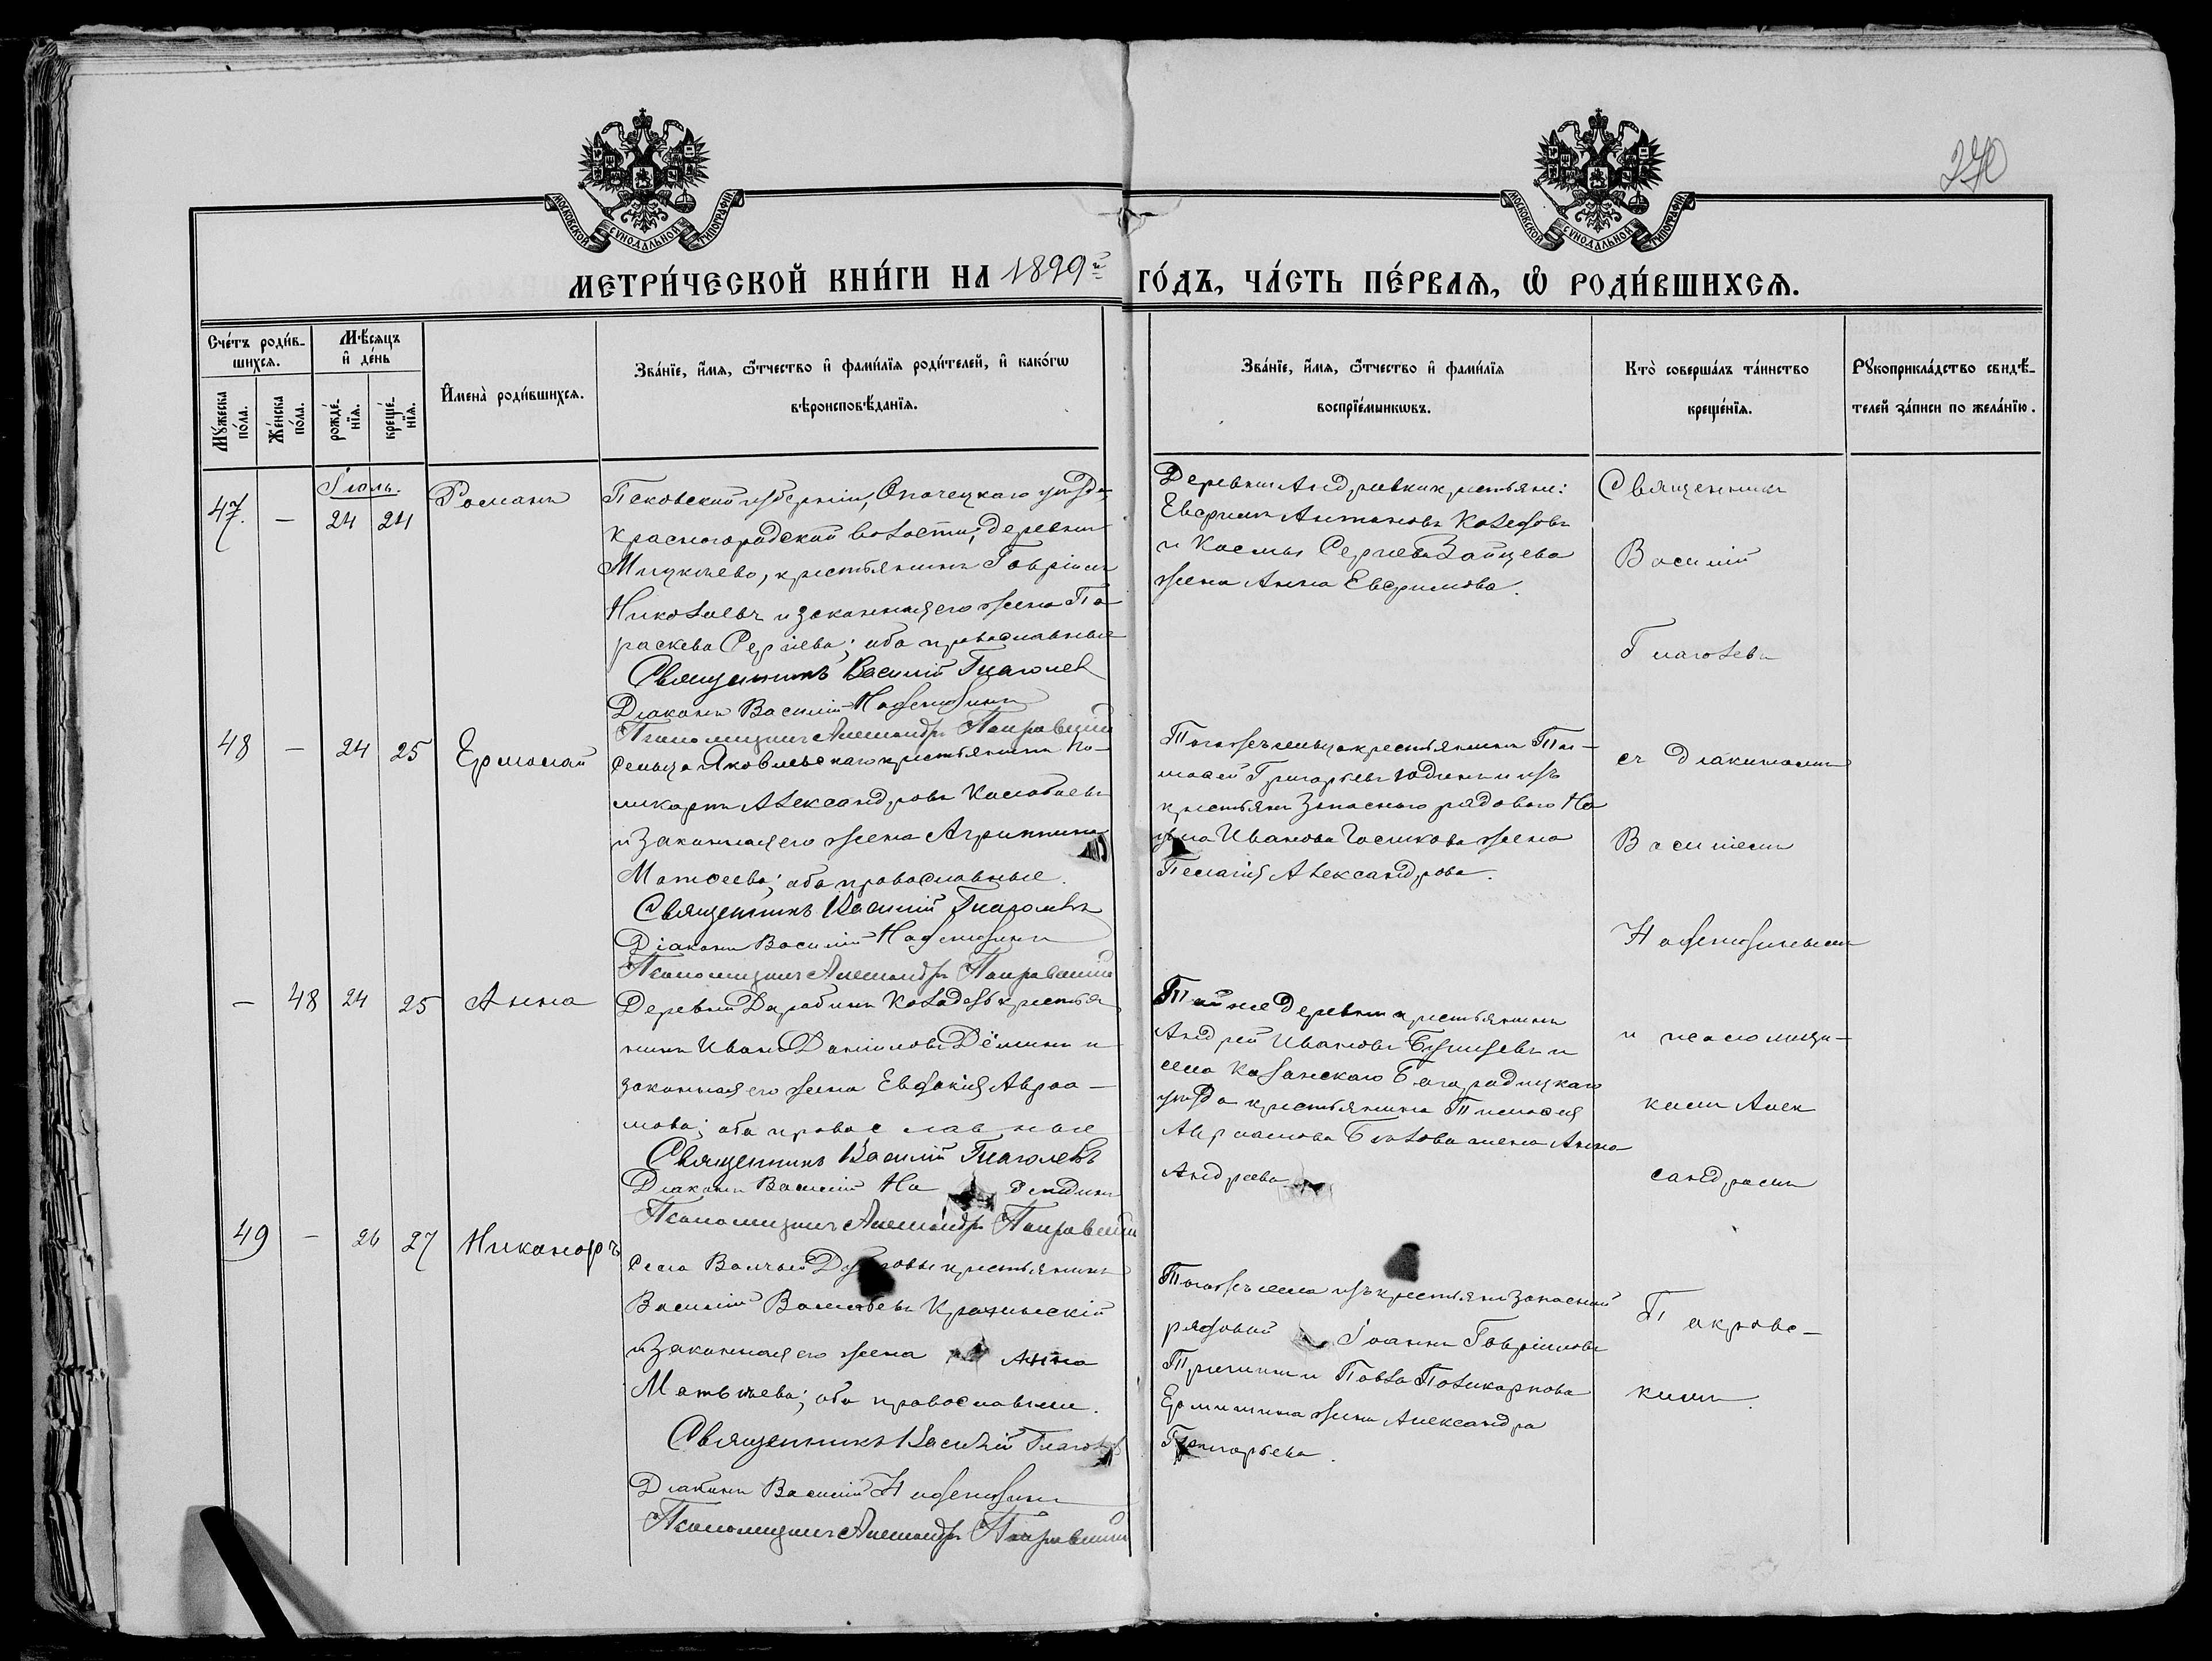 270
МОСКОВСКОЙ СѴНОДАЛЬНОЙ ТИПОГРАФІИ
МОСКОВСКОЙ СѴНОДАЛЬНОЙ ТИПОГРАФІИ
МЕТРИ́ЧЕСКОЙ КНИ́ГИ НА 1899й ГО́ДЪ, ЧА́СТЬ ПЕ́РВАЯ, Ѡ РОДИ́ВШИХСЯ.
Сче́тъ роди́в-
шихся.
Мѣ́сяцъ
и де́нь
Мꙋ́жеска по́ла.
Же́нска по́ла.
рожде́-
нїя.
креще́-
нїя.
Имена̀ роди́вшихся.
Зва́нїе, и́мя, ѻ҆́тчество и фами́лїя роди́телей, и како́гѡ
вѣроисповѣ́данїя.
Зва́нїе, и́мя, ѻ҆́тчество и фами́лїя
воспрїе́мникѡвъ.
Кто̀ соверша́лъ та́инство
креще́нїя.
Рꙋкоприкла́дство свидѣ́-
телей за́писи по жела́нїю.
Іюль.
47. — 24 24 Романъ
Псковской губерніи, Опочецкаго уѣзда,
Красногородской волости, деревни
крестьянинъ Гавріилъ
Николаевъ и законная его жена Па
раскева Сергіева; оба православные
Священникъ Василій Глаголевъ
Діаконъ Василій Надеждинъ
Псаломщикъ Александръ Покровскій
Деревни Андреевки крестьяне:
Евфримъ Антоновъ
и Космы Сергіева Зайцева
жена Анна Евфримова.
Священникъ
Василій
Глаголевъ
48 — 24 25 Ермолай
Сельца Яковлевскаго крестьянинъ По-
ликарпъ Александровъ
и законная его жена Агриппина
Матѳеева; оба православные.
Священникъ Василій Глаголевъ
Діаконъ Василій Надеждинъ
Псаломщикъ Александръ Покровскій
Тогожъ сельца крестьянинъ Ти-
моѳей Григорьевъ Юдинъ и изъ
крестьянъ запаснаго рядового На
ума Иванова жена
Пелагія Александрова.
съ діакономъ
Василіемъ
Надеждинымъ
— 48 24 25 Анна
Деревни Колодезь крестья
нинъ Иванъ Даніиловъ Дёминъ и
законная его жена Евдокія Авраа-
мова; оба православные
Священникъ Василій Глаголевъ
Діаконъ Василій Надеждинъ
Псаломщикъ Александръ Покровскій
Той же деревни крестьянинъ
Андрей Ивановъ и
села Казанскаго Богородицкаго
уѣзда крестьянина Тимоѳея
Авраамова жена Анна
Андреева
и псаломщи-
комъ Алек
сандромъ
49 — 26 27 Никаноръ
Села Волчьей Дубровы крестьянинъ
Василій Васильевъ
и законная его жена Анна
Матвѣева; оба православные.
Священникъ Василій Глаголевъ
Діаконъ Василій Надеждинъ
Псаломщикъ Александръ Покровскій
Тогожъ села изъ крестьянъ запасный
рядовой Іоаннъ Гавріиловъ
и Павла Поликарпова
жена Александра
Григорьева.
Покровс-
кимъ.